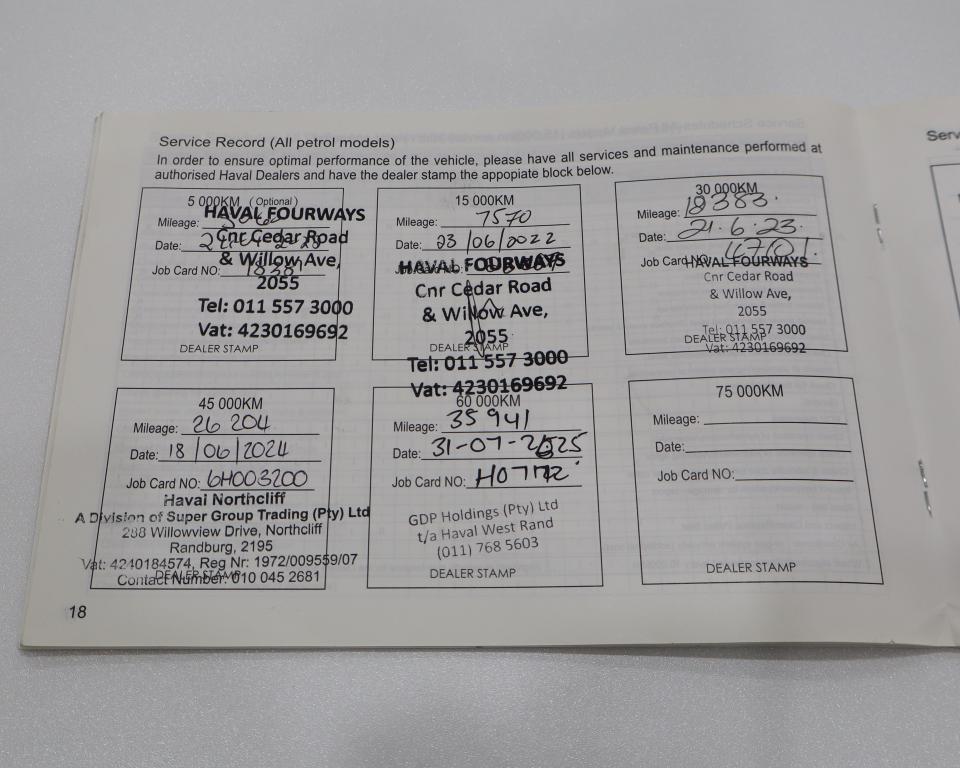 Service Record (All petrol models)
In order to ensure optimal performance of the vehicle, please have all services and maintenance performed at
authorised Haval Dealers and have the dealer stamp the appopiate block below.
5 000KM (Optional)
Mileage:
HAVAL FOURWAYS
Date:
Cnr Cedar Road
& Willow Ave,
Job Card NO:
2055
Tel: 011 557 3000
Vat: 4230169692
DEALER STAMP
15 000KM
Mileage: 7570
Date: 23/06/2022
HAVAL FOURWAYS
Cnr Cedar Road
& Willow Ave,
2055
DEALER STAMP
Tel: 011 557 3000
Vat: 4230169692
30 000KM
Mileage: 18383.
Date: 21.6.23.
Job Card NO:
HAVAL FOURWAYS
Cnr Cedar Road
& Willow Ave,
2055
Tel: 011 557 3000
DEALER STAMP
Vat: 4230169692
45 000KM
Mileage: 26 204
Date: 18/06/2024
Job Card NO: 6H003200
Haval Northcliff
A Division of Super Group Trading (Pty) Ltd
288 Willowview Drive, Northcliff
Randburg, 2195
Vat: 4240184574, Reg Nr: 1972/009559/07
Contact Number: 010 045 2681
DEALER STAMP
60 000KM
Mileage: 35 941
Date: 31-07-2025
Job Card NO:
GDP Holdings (Pty) Ltd
t/a Haval West Rand
(011) 768 5603
DEALER STAMP
75 000KM
Mileage:
Date:
Job Card NO:
DEALER STAMP
18